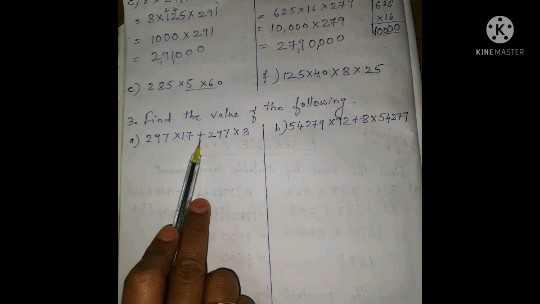 = 8×125×291
= 1000 × 291
= 2,91,000
e) 285 × 5 × 60
= 625×16×279
= 10,000 × 279
= 2790,000
×16
10000
f) 125×40×8×25
3. Find the value of the following.
a) 297×17+297×3
b) 54279×92+8×54279
KINEMASTER